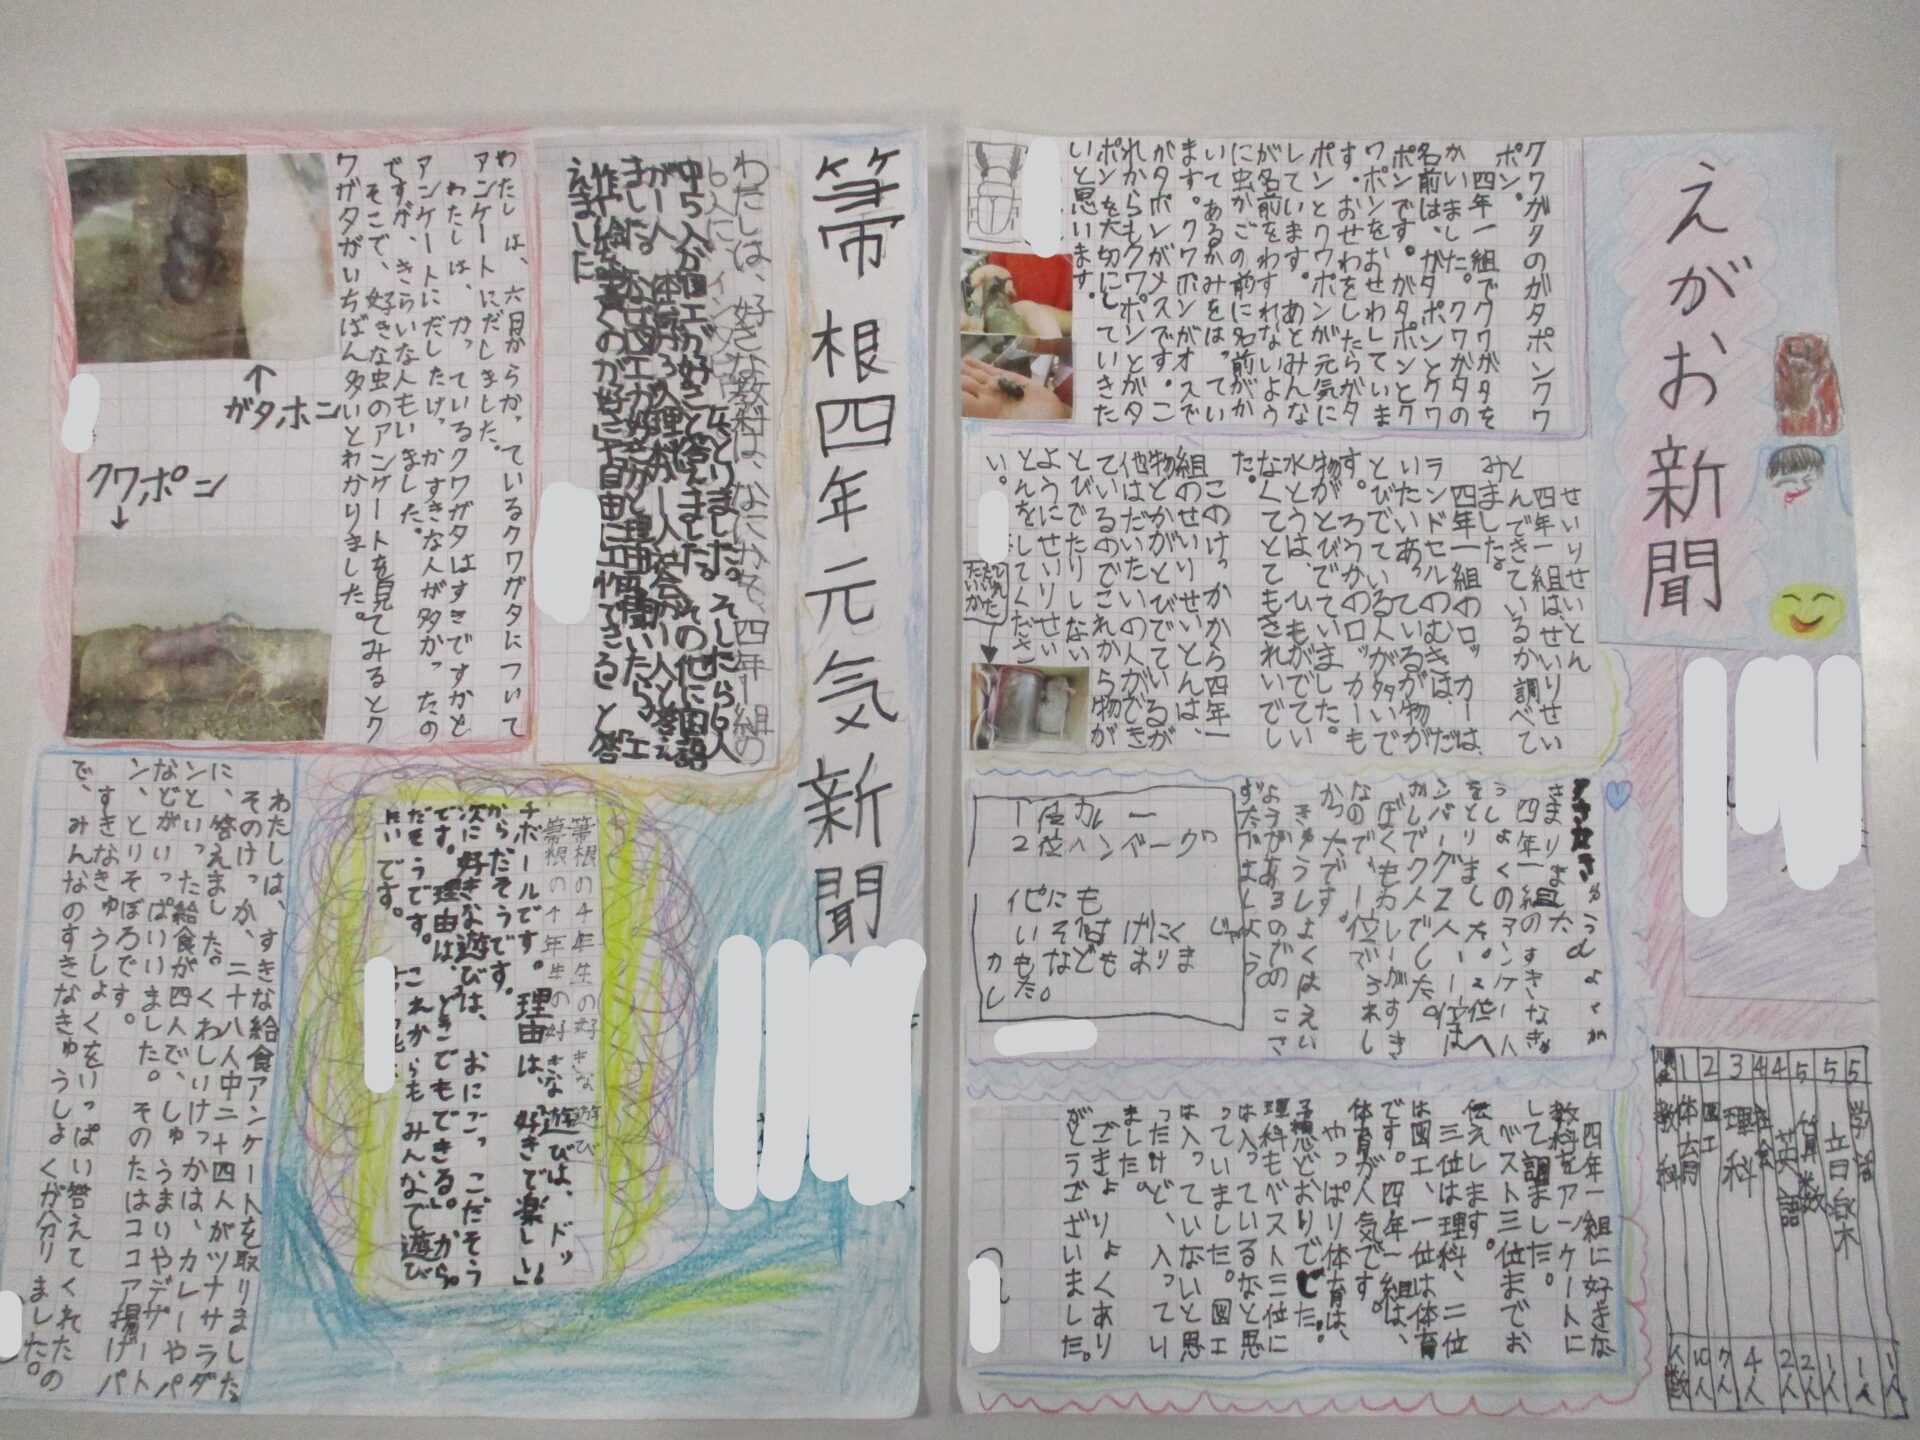 えがお新聞
クワガタのガタポンクワ
ポン。
四年一組でクワガタを
かいました。クワガタの
名前は、ガタポンとクワ
ポンです。ガタポンとク
ワポンをおせわしていま
す。おせわをしたらガタ
ポンとクワポンが元気に
しています。あとみんな
が名前をわすれないよう
に虫かごの前に名前がか
いてあるかみをはってい
ます。クワポンがオスで
ガタポンがメスです。こ
れからもクワポンとガタ
ポンを大切にしていきた
いと思います。
せいりせいとん
四年一組は、せいりせい
とんできているか調べて
みました。
四年一組のロッカーは、
ランドセルのむきは、だ
いたいあっているが物が
とびでている人が多いで
す。ろうかのロッカーも
物がとびでていました。
水とうは、ひもがでてい
なくてとてもきれいでし
た。
このけっかから四年一
組のせいりせいとんは、
物とかがとびでているが
他はだいたいの人ができ
ているのでこれから物が
とびでたりしない
ようにせいりせい
とんをしてくださ
い。
きゅうしょくが
きまりました
四年一組のすきなきゅ
うしょくのアンケート
をとりました。2位ハ
ンバーグ2人 1位は
カレーで7人でした。
ぼくもカレーがすき
なので、1位でうれし
かったです。
1位カレー
2位ハンバーグ
他にも
四年一組に好きな
教科をアンケートに
して調ました。
ベスト三位までお
伝えします。
三位は理科、二位
は図工、一位は体育
です。四年一組は、
体育が人気です。
やっぱり体育は、
予想どおりでした。
理科もベスト三位に
は入っているなと思
っていました。図工
は入っていないと思
ったけど、入ってい
ました。
ごきょうりょくあり
がとうございました。
順位 1 2 3 4 4 5 5 5
教科 体育 図工 理科 社会 英語 算数 音楽 学活
人数 10人 7人 4人 2人 2人 1人 1人 1人
箒根四年元気新聞
わたしは、好きな教科は、なにかで、四年一組の
6人にインタビューをとりました。そしたら6人
中5人が図工が好きと答えました。その他に国語
が一人、体育が一人、理科が一人、社会が一人と答え
ました。
えました
わたしは、六月からかっているクワガタについて
アンケートにだしました。
わたしは、かっているクワガタはすきですかと
アンケートにだしたけっか、すきな人が多かったの
ですが、きらいな人もいました。
そこで、好きな虫のアンケートを見てみるとク
ワガタがいちばん多いとわかりました。
↑
ガタポン
クワポン
↓
箒根の4年生の好きな遊び
箒根の4年生の好きな遊びは、ドッ
チボールです。理由は、「好きで楽しい」
からだそうです。
次に好きな遊びは、おにごっこだそう
です。理由は、「どこでもできる。」から。
だそうです。これからもみんなで遊び
たいです。
わたしは、すきな給食アンケートを取りました。
そのけっか、二十八人中二十四人がツナサラダ
に、答えました。くわしいけっかは、カレーやパ
ンといった給食が四人で、しゅうまいやデザート
などがいっぱいいました。そのたはココア揚げパ
ン、とりそぼろです。
すきなきゅうしょくをいっぱい答えてくれたの
で、みんなのすきなきゅうしょくが分りました。